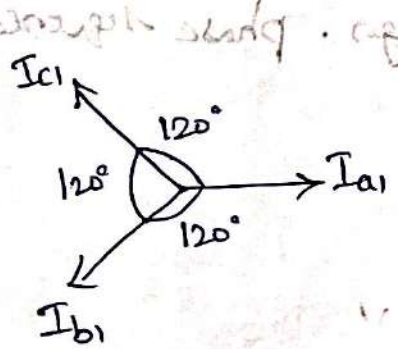 I_c1
120°
120°
I_a1
120°
I_b1